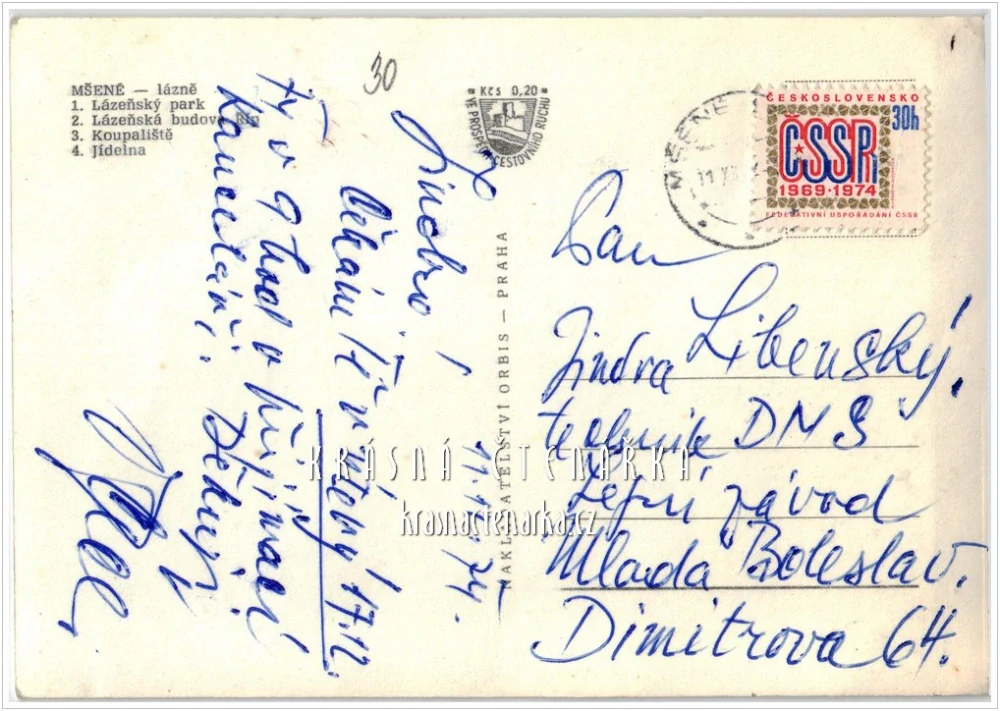 MŠENÉ — lázně
1. Lázeňský park
2. Lázeňská budova Říp
3. Koupaliště
4. Jídelna
30
Kčs 0,20
VE PROSPĚCH CESTOVNÍHO RUCHU
MŠENÉ
ČESKOSLOVENSKO
30h
ČSSR
1969·1974
FEDERATIVNÍ USPOŘÁDÁNÍ ČSSR
NAKLADATELSTVÍ ORBIS — PRAHA
11. 12. 74.
Jindro!
Čekám Tě v úterý 17.12
v 9 hod v přijímací
kanceláři.
Děkuji
Pan
Jindra Libenský,
technik DNS
Letní závod
Mladá Boleslav.
Dimitrova 64.
KRÁSNÁ ČTENÁŘKA
krasnactenarka.cz